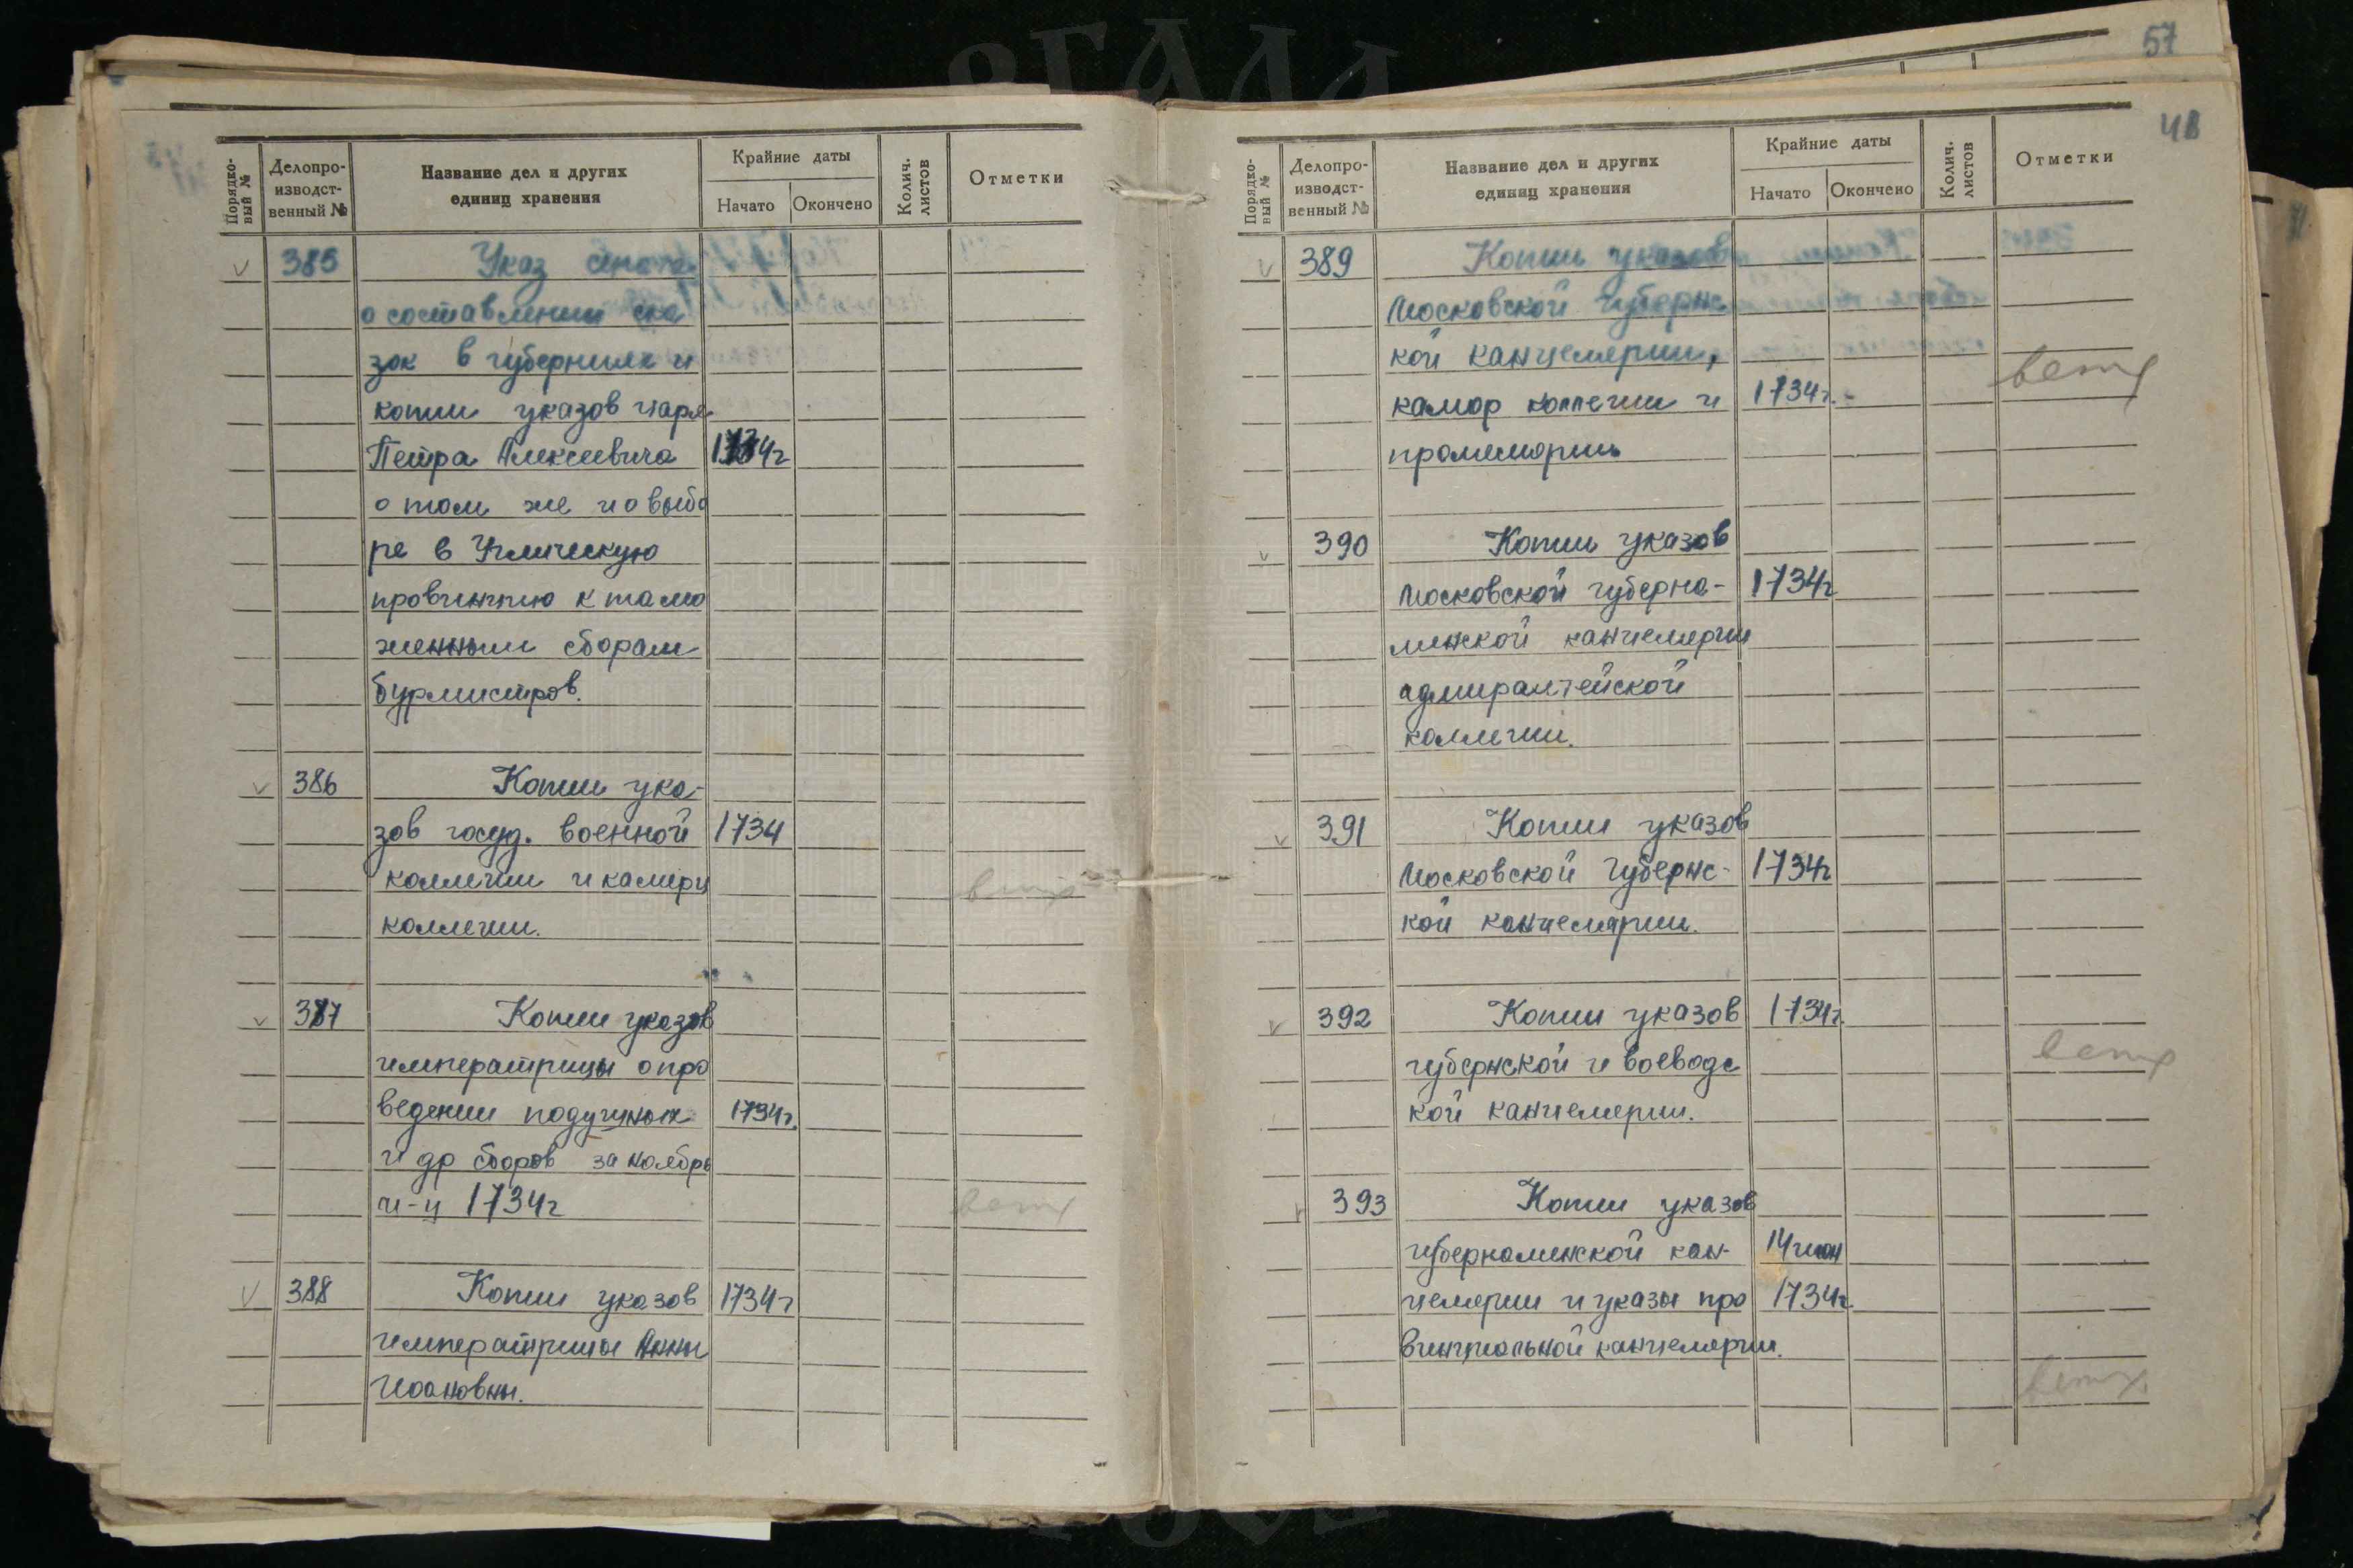 57
48
Порядко-
вый №
Делопро-
изводст-
венный №
Название дел и других
единиц хранения
Крайние даты
Начато
Окончено
Колич.
листов
Отметки
385 Указ
о составлении ска
зок в губерниях и
копии указов царя
Петра Алексеевича
о том же и о выбо
ре в Углическую
провинцию к тамо
женным сборам
бурмистров.
386 Копии ука-
зов госуд. военной 1734
коллегии и камерц
коллегии. ветх
387 Копии указов
императрицы о про
ведении подушных 1734г.
и др сборов за ноябрь
м-ц 1734г ветх
388 Копии указов 1734г
императрицы Анны
Иоановны.
Порядко-
вый №
Делопро-
изводст-
венный №
Название дел и других
единиц хранения
Крайние даты
Начато
Окончено
Колич.
листов
Отметки
389 Копии указов
Московской губернс
кой канцелярии, ветх
камор коллегии и 1734г.
промемории
390 Копии указов
Московской губерна- 1734г
минской канцелярии
адмиралтейской
коллегии.
391 Копии указов
Московской губернс- 1734г
кой канцелярии.
392 Копии указов 1734г.
губернской и воеводс ветх
кой канцелярии.
393 Копии указов
губернаминской кан- 14 июн
целярии и указы про 1734г.
винциальной канцелярии.
ветх.